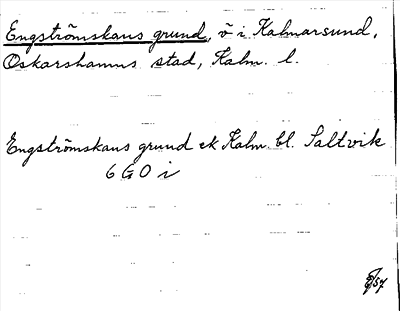 Engströmskans grund, ö i Kalmarsund,
Oskarshamns stad, Kalm. l.
Engströmskans grund ek Kalm. bl. Saltvik
6 G O i
/57